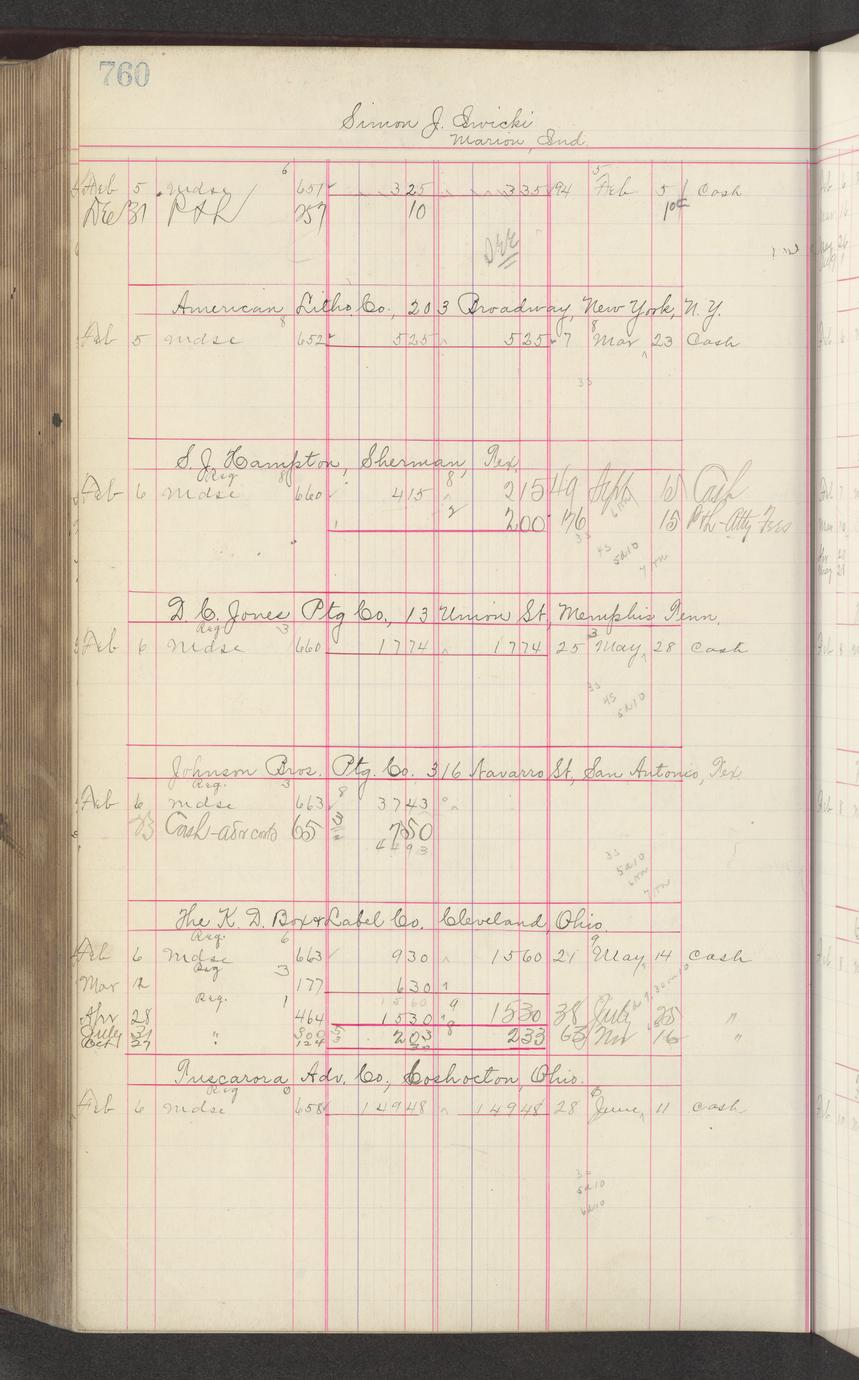 760
Simon J. Gwicki
Marion, Ind.
Feb 5 mdse 6 651 325 335 94 5 Feb 5 Cash
Dec 31 P & L 257 10 10¢
American Litho. Co., 203 Broadway, New York, N.Y.
Feb 5 mdse 8 652 525 525 7 8 Mar 23 Cash
3s
S. J. Hampton, Sherman, Tex.
Reg 8
Feb 6 mdse 660 415 8 215 49 Sept 15 Cash
2 200 176 15 P&L-Atty Fees
3s
4s
5a10
7m
D. C. Jones Ptg Co., 13 Union St, Memphis Tenn.
Reg. 3
Feb 6 mdse 660 1774 1774 25 3 May 28 Cash
3s
4s
5a10
Johnson Bros. Ptg. Co. 316 Navarro St, San Antonio, Tex.
Reg. 3
Feb 6 mdse 663 8 3743
23 Cash-adv costs 65 3 750
4493
3s
5a10
6m
7m
The K. D. Box & Label Co. Cleveland, Ohio.
Reg. 6
Feb 6 mdse 663 930 1560 21 9 May 14 Cash
Reg 3
Mar 12 177 630
Reg. 1 1560 9
Apr 28 464 1530 1530 38 July 25 "
July 31 " 300 5 203 8 233 63 Nov 16 "
Oct 27 124 3 30
Tuscarora Adv. Co., Coshocton, Ohio.
Reg 0
Feb 6 mdse 658 14948 14948 28 6 June 11 Cash
3s
5a10
6a10